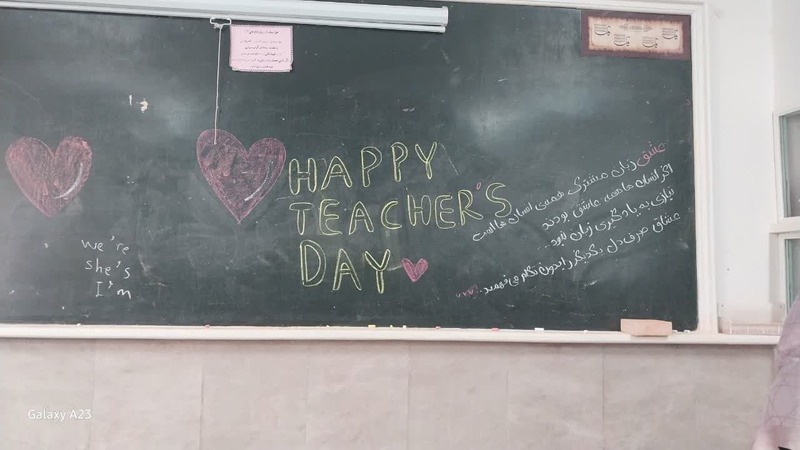 HAPPY
TEACHER'S
DAY
we're
she's
I'm
عشق زبان مشترک همهی انسان هاست
اگر انسان ها همه عاشق بودند
نیازی به یادگیری زبان نبود...
عشاق صرف دل یکدیگر را بدون تکلم می فهمید...
Galaxy A23